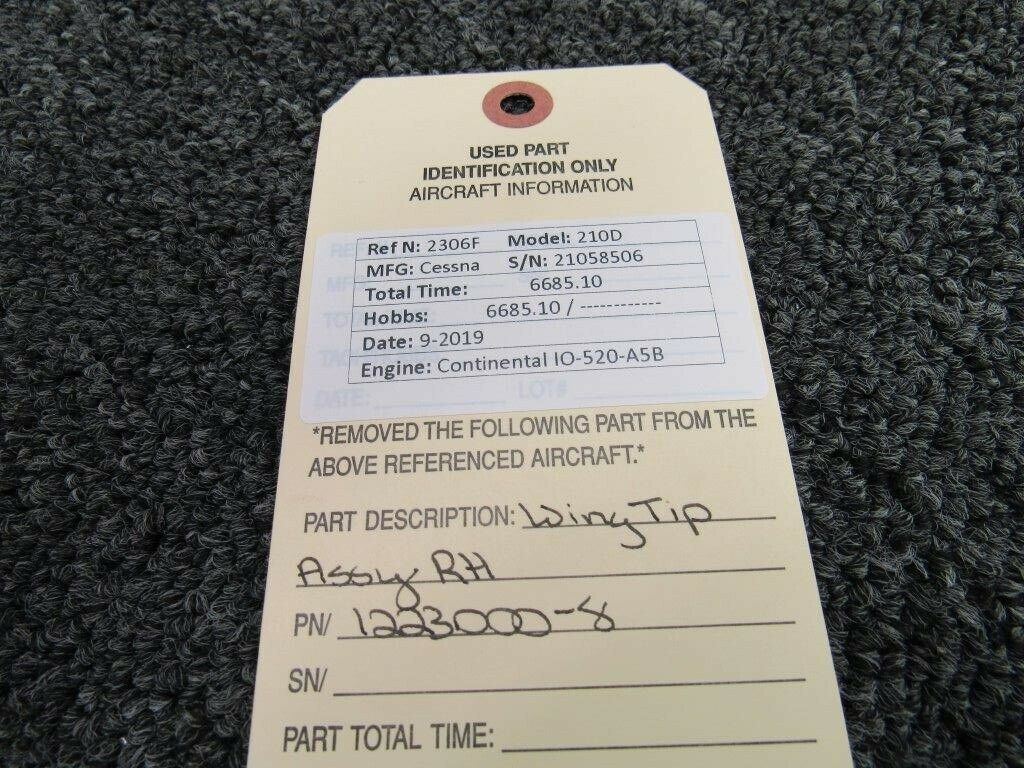 USED PART
IDENTIFICATION ONLY
AIRCRAFT INFORMATION
Ref N: 2306F Model: 210D
MFG: Cessna S/N: 21058506
Total Time: 6685.10
Hobbs: 6685.10 / ------------
Date: 9-2019
Engine: Continental IO-520-A5B
DATE: LOT#
*REMOVED THE FOLLOWING PART FROM THE
ABOVE REFERENCED AIRCRAFT.*
PART DESCRIPTION: Wing Tip
Assy RH
PN/ 1223000-8
SN/
PART TOTAL TIME: